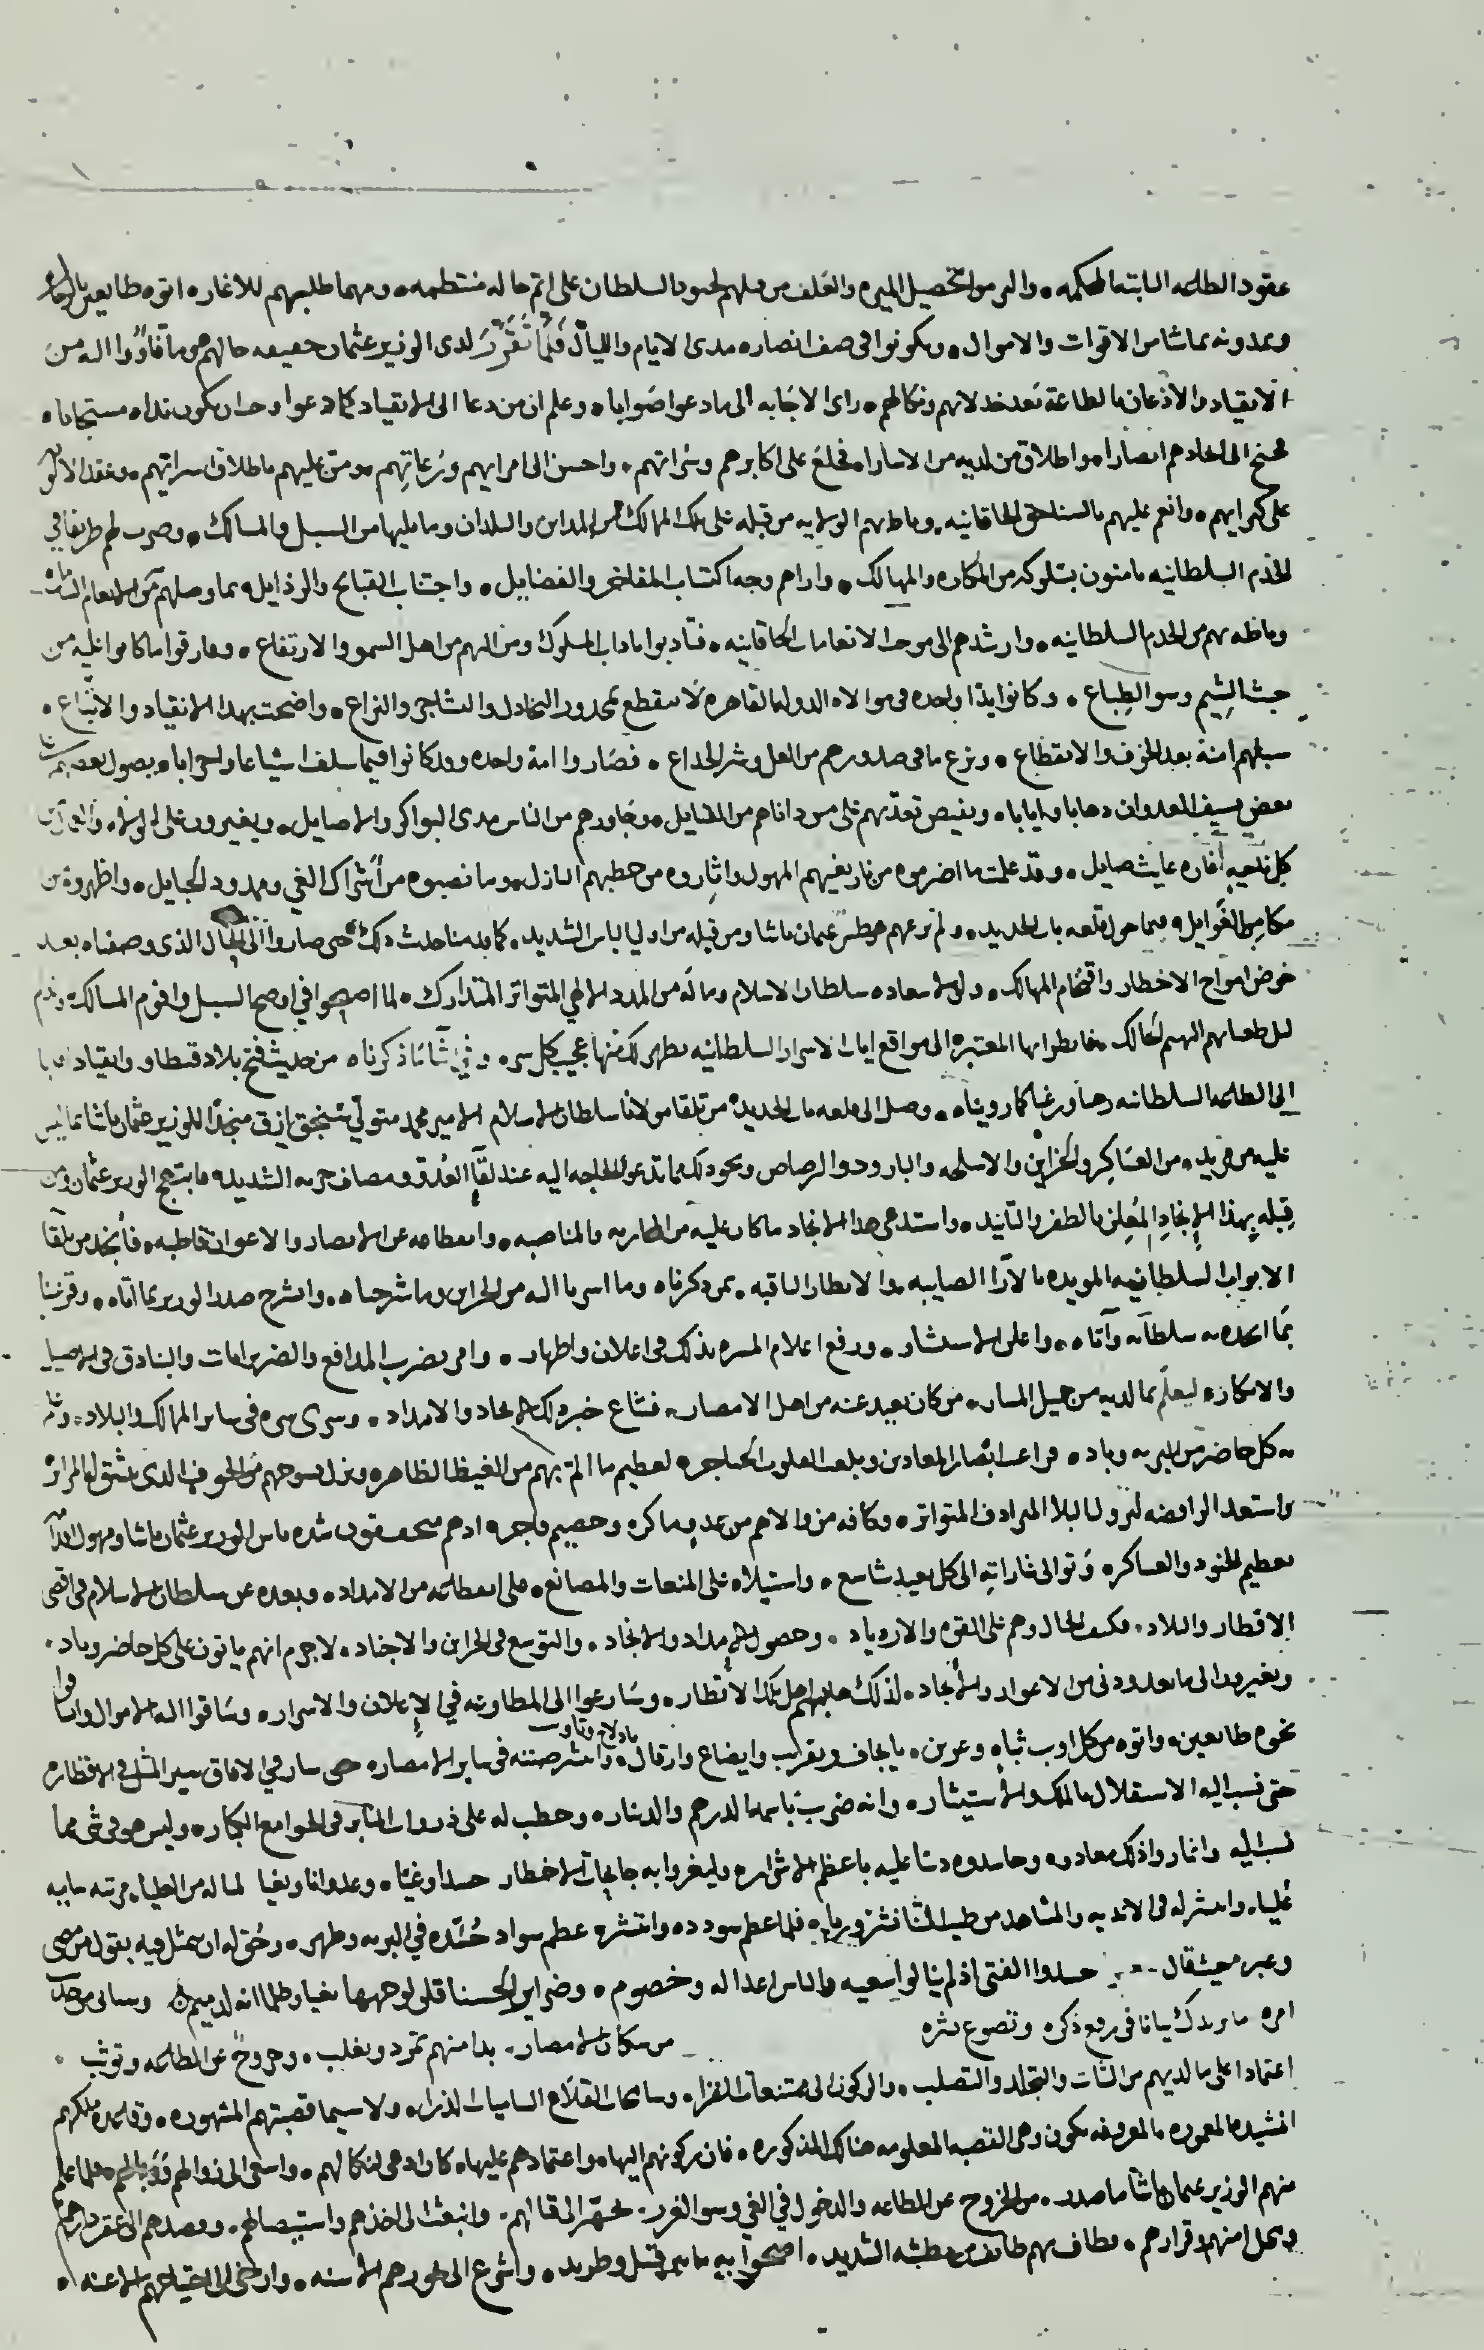 عقود الطاعه الثابته المحكمه والتزموا تحصيل الميره والعلف من قبلهم لجنود السلطان على اتم حاله منتظمه ومهما طلبهم للاغاره اتوه طايعين
ويمدونه بما شا من الاقوات والاموال ويكونوا في صف انصاره مدى الايام والليال فلما تقرر لدى الوزير عثمان حقيقه حالهم وما فاؤوا اليه من
الانقياد والاذعان بالطاعة بعد خذلانهم ونكالهم راى الاجابه الى ما دعوا صوابا وعلم ان من دعا الى الانقياد كما دعوا وجب ان يكون نداه مستجابا
فجنح الى اتخاذهم انصارا واطلاق من لديه من الاسارا فخلع على اكابرهم وسراتهم واحسن الى امرايهم ورعاتهم ومن عليهم باطلاق اسرايهم وعقد الالويه
على كبرايهم وانعم عليهم بالسناجق الخاقانيه وناط بهم الولايه من قبله على تلك الممالك من المداين والبلدان وما يليها من السبل والمسالك وضرب لهم طريقا في
الخدم السلطانيه يامنون بسلوكه من المكاره والمهالك واراهم وجه اكتساب المفاخر والفضايل واجتناب القبايح والرذايل بما وصلهم من الانعام
وناطه بهم من الخدم السلطانيه وارشدهم الى موجب الانعامات الخاقانيه فتادبوا باداب الملوك ومن اليهم من اهل السمو والارتفاع وفارقوا ما كانوا عليه من
خبث الشيم وسو الطباع وكانوا يدا واحده في موالاه الدوله القاهره لا ينقطع بمحذور التخاذل والتشاجي والنزاع واضحت بهذا الانقياد والاتباع
سبلهم امنة بعد الخوف والانقطاع ونزع ما في صدورهم من الغل وشر الخداع فصاروا امة واحده وقد كانوا فيما سلف اشياعا واحزابا يصول بعضهم على
بعض بسيف العدوان ذهابا وايابا ويفيض تعديهم على من داناهم من القبايل وجاورهم من الناس مدى البواكر والاصايل ويغيرون على
كل ناحيه اغاره عايث صايل وقد علمت ما اضرموه من نار بغيهم المهول واثاروه من خطبهم النازل وما نصبوه من اشراك الغي ومدود الحبايل واظهروه من
مكامن الغوايل فيما حول قلعه باب الحديد ولم يرعهم عثمان باشا ومن قبله من اوليا الباس الشديد كابدنا حدث ذلك حتى صاروا الى الحال الذي وصفناه بعد
خوض امواج الاخطار واقتحام المهالك ولولا سعاده سلطان الاسلام وماله من المدد الالهي المتواتر المتدارك لما اصبحوا في اوضح السبل واقوم المسالك
الحالك فانظر ايها المعتبر الى مواقع ايات الاسرار السلطانيه يظهر لك منها عجب كل سر وفي اثنا ما ذكرناه من حديث فتح بلاد قيطاو وانقياد
الى الطاعه السلطانيه رهبا ورغبا كما رويناه وصل الى قلعه باب الحديد من تلقا مولانا سلطان الاسلام الامير محمد متولي سنجق ازق منجدا للوزير عثمان باشا بما ليس
عليه من مزيد من العساكر والخزاين والاسلحه والبارود والرصاص ونحو ذلك مما تدعو الحاجه اليه عند لقا العدو ومصاف حربه الشديد فابتهج الوزير عثمان ومن
قبله بهذا الانجاد المعلن بالظفر والتاييد واستدعى هذا الانجاد ما كان عليه من المحاربه والمناصبه وانقطاعه عن الانصار والاعوان قاطبه فانجد من تلقا
الابواب السلطانيه المويده بالارا الصايبه والانظار الثاقبه بمن ذكرناه وما اسرنا اليه من الخزاين وما شرحناه وانشرح صدر الوزير بما اتاه وقر عينا
بما انجده به سلطانه وآتاه واعلن الاستبشار ورفع اعلام المسره بذلك في اعلان واظهار وامر بضرب المدافع والضربزانات والبنادق في الاصيل
والابكار ليعلم بما لديه من جميل المسار من كان بعيد عنه من اهل الامصار فشاع خبر ذلك الانجاد والامداد وسرى سره في ساير الممالك والبلاد
به كل حاضر من البريه وباد فراعت ابصار المعادين وبلغت القلوب الحناجر لعظيم ما الم بهم من الغيظ الظاهر ونزل بسوحهم من الخوف الذي يشق المراير
واستعد الرافضه لنزول البلا المترادف المتواتر وكافه من والاهم من عدو ماكر وخصيم فاجر اذ هم متحققون شده باس الوزير عثمان باشا ومهول اقدامه
بعظيم الجنود والعساكر وتوالى غاراته الى كل بعيد شاسع واستيلاه على المنعات والمصانع على انقطاعه من الامداد وبعده عن سلطان الاسلام في اقصى
الاقطار والبلاد فكيف الحال وهم على القوه والازدياد وحصول الامداد والانجاد والتوسع في الخزاين والاجناد لاجرم انهم ياتون على كل حاضر وباد
ويغيرون الى ما بعد ودنى من الاغوار والانجاد لذلك هابهم اهل تلك الاقطار وسارعوا الى المطاوعه في الاعلان والاسرار وساقوا اليه الاموال وانساقوا
نحوه طايعين واتوه من كل اوب ثباه وعزين بايجاف وتقريب وايضاع وارقال بادلاج وتاويب وانتشر صيته في ساير الامصار حتى سار في الافاق سير المثل في الاقطار
حتى نسب اليه الاستقلال بالملك والاستيثار وانه ضرب باسمه الدرهم والدينار وخطب له على ذروات المنابر في الجوامع الكبار وليس هو في شي مما
نسب اليه وانما روا ذلك معادوه وحاسدوه دسا عليه باعظم الاشرار وليغروا به جانحات الاخطار حسدا وغيا وعدوانا وبغيا لما له من العليا مرتبه سابيه
عليا وانتشر له في الانديه والمشاهد من طيب الثنا نشر وريا فلما عظم سودده وانتشر عظم سواد حسده في البريه وظهر وحق له ان يتمثل فيه بقول من مضى
وعبر حيث قال حسدوا الفتى اذ لم ينالوا سعيه والناس اعدا له وخصوم وضراير الحسنا قلن لوجهها بغيا وظلما انه لدميم وسياتي من حديث
امره ما يزيدك بيانا في رفع ذكره وتضوع نشره
من سكان الامصار بدا منهم تمرد وتغلب وخروج عن الطاعه وتوثب
اعتمادا على ما لديهم من الثبات والتجلد والتصلب والركون الى ممتنعات القرا وسامحات القلاع الساميات الذرا ولا سيما قصبتهم المشهوره وقاعده ملكهم
المشيده المعموره المعروفه بكون وهي القصبه المعلومه هنالك المذكوره فان ركونهم اليها واعتمادهم عليها كان ادعى لنكالهم واسعى الى زوالهم ووبالهم فلما علم
منهم الوزير عثمان باشا ما صدر من الخروج عن الطاعه والدخول في الغي وسو الغرر تجهز الى قتالهم وانبعث الى اخذهم واستيصالهم وقصدهم الى عقر دارهم
ومحل امنهم وقرارهم فطاف بهم طايف من بطشه الشديد اصبحوا به ما بين قتيل وطريد واشرع الى نحورهم الاسنه وارخى الى اجتياحهم الاعنه